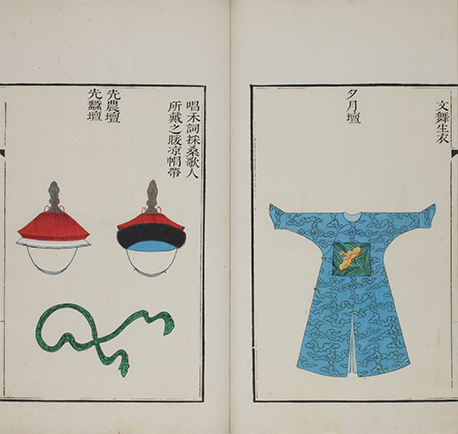 文舞生衣
夕月壇
唱禾詞採桑歌人
所戴之暖凉帽帶
先農壇
先蠶壇